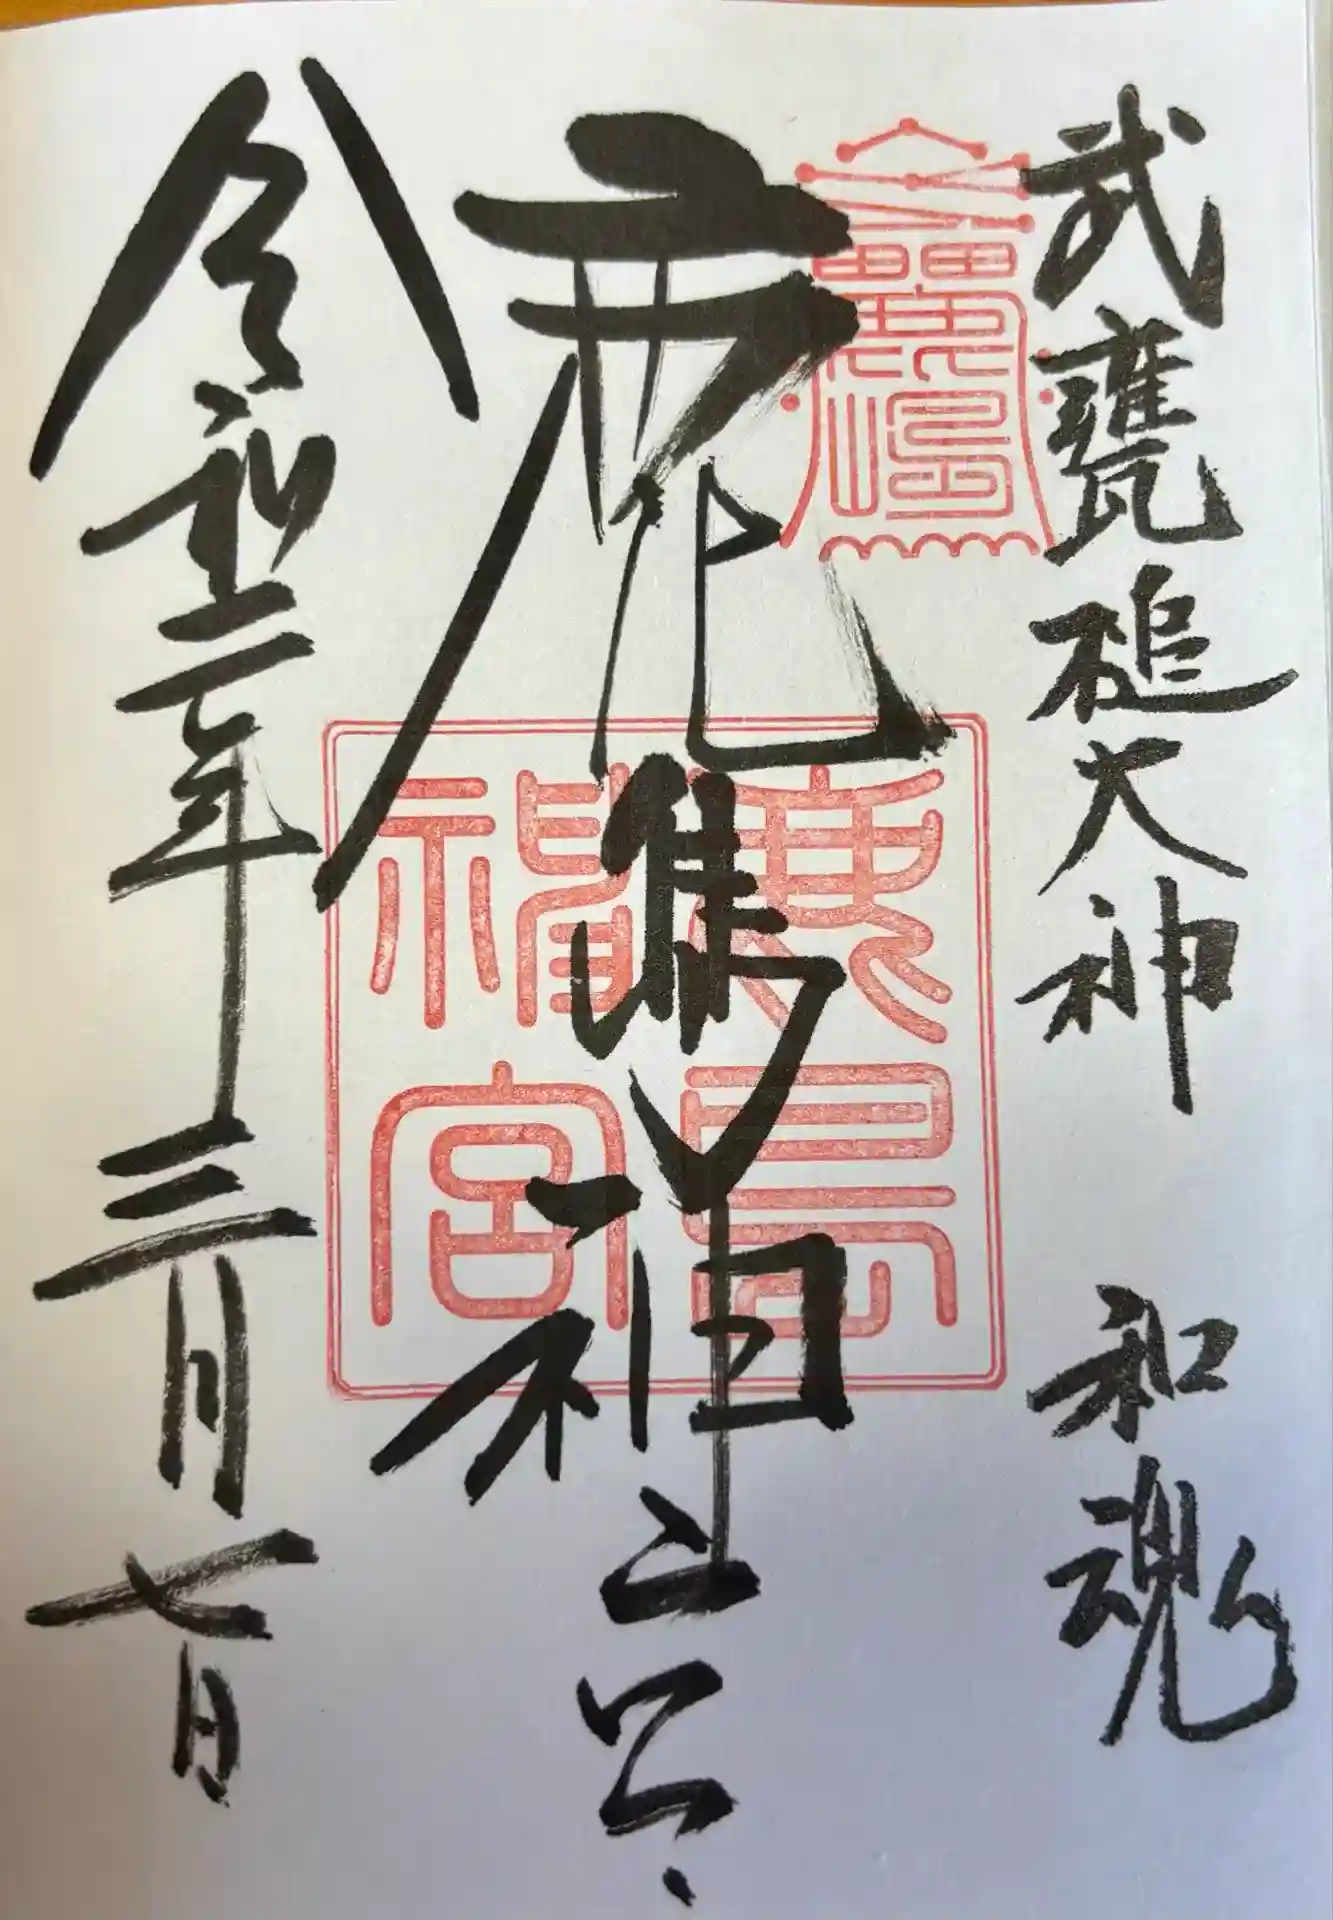 武甕槌大神 和魂
鹿島神宮
令和年三月七日
鹿嶋
鹿島
神宮